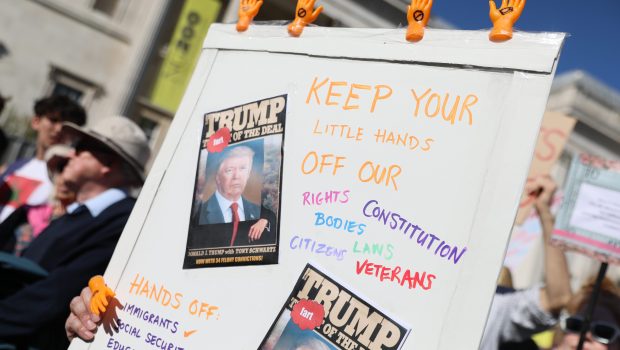 KEEP YOUR
LITTLE HANDS
OFF OUR
RIGHTS
CONSTITUTION
BODIES
CITIZENS
LAWS
VETERANS
TRUMP
fart
OF THE DEAL
DONALD J. TRUMP WITH TONY SCHWARTZ
NOW WITH 34 FELONY CONVICTIONS!
HANDS OFF:
IMMIGRANTS
SOCIAL SECURITY
TRUMP
fart
OF THE DEAL
200